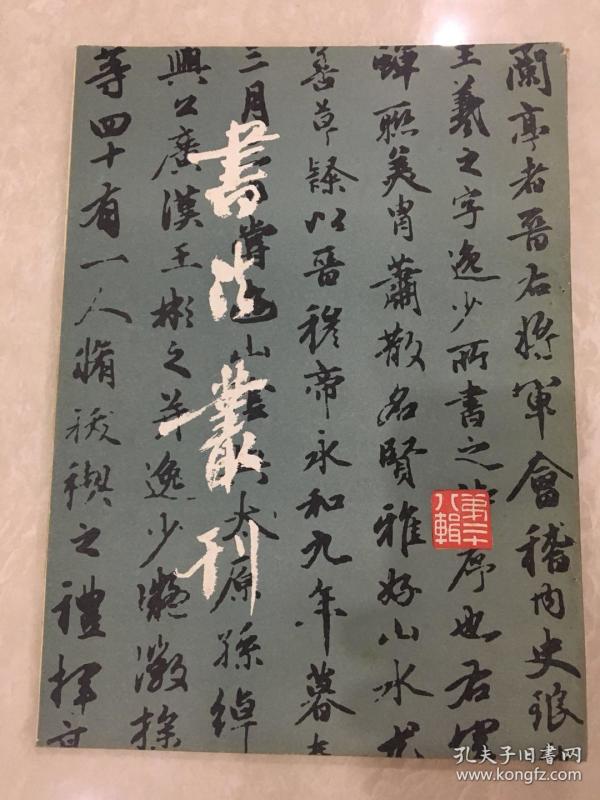 書法叢刊
第二十
八輯
蘭亭者晉右將軍會稽内史琅
王羲之字逸少所書之序也右軍
蟬聯美胄蕭散名賢雅好山水尤
善草隸以晉穆帝永和九年暮春
三月嘗遊山太原孫綽
興公廣漢王彬之并逸少凝徽操
等四十有一人脩祓禊之禮揮
孔夫子旧书网
www.kongfz.com